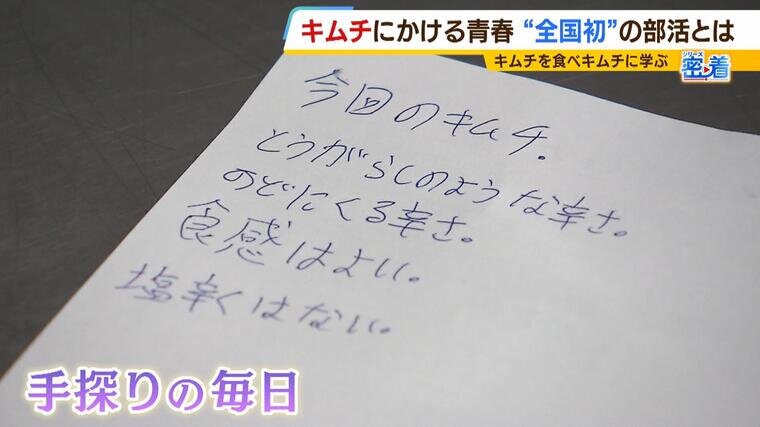 キムチにかける青春 “全国初”の部活とは
キムチを食べキムチに学ぶ
シリーズ
密着
今回のキムチ.
とうがらしのような辛さ。
のどにくる辛さ。
食感はよい。
塩辛くはない。
手探りの毎日